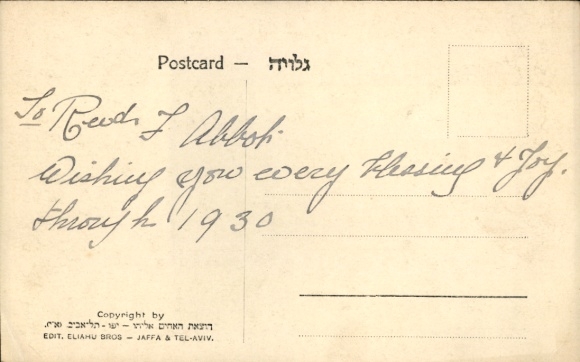 Postcard — גלויה
To Revd. F Abbot
Wishing you every blessing & Joy.
through 1930
Copyright by
הוצאת האחים אליהו — יפו - תל-אביב.
EDIT. ELIAHU BROS — JAFFA & TEL-AVIV.